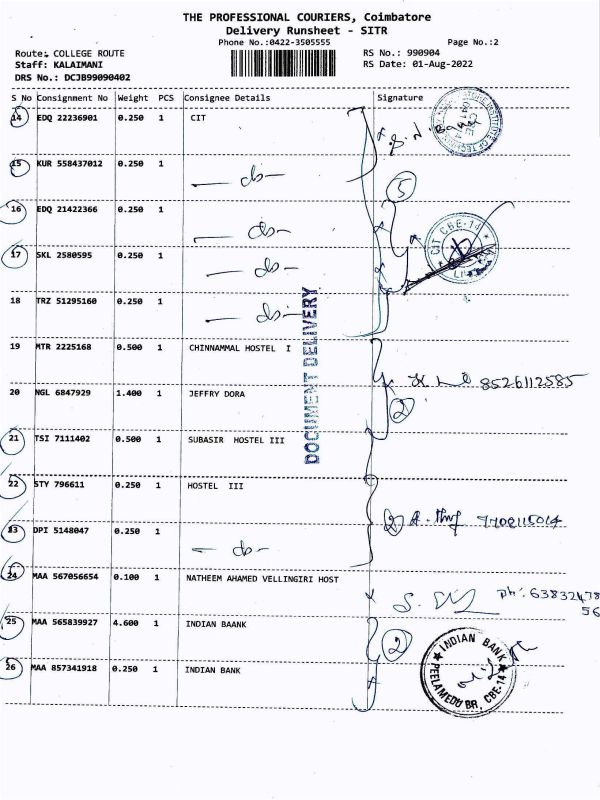 THE PROFESSIONAL COURIERS, Coimbatore
Delivery Runsheet - SITR
Phone No.:0422-3505555
Page No.:2
Route: COLLEGE ROUTE
RS No.: 990904
Staff: KALAIMANI
RS Date: 01-Aug-2022
DRS No.: DCJB99090402
S No Consignment No Weight PCS Consignee Details Signature
14 EDQ 22236901 0.250 1 CIT
15 KUR 558437012 0.250 1 — do —
16 EDQ 21422366 0.250 1 — do —
5
17 SKL 2580595 0.250 1 — do —
CIT CBE-14
18 TRZ 51295160 0.250 1 — do —
DOCUMENT DELIVERY
19 MTR 2225168 0.500 1 CHINNAMMAL HOSTEL I
8526112585
20 NGL 6847929 1.400 1 JEFFRY DORA
2
21 TSI 7111402 0.500 1 SUBASIR HOSTEL III
22 STY 796611 0.250 1 HOSTEL III
2
23 DPI 5148047 0.250 1 — do —
24 MAA 567056654 0.100 1 NATHEEM AHAMED VELLINGIRI HOST
ph: 63832478
56
25 MAA 565839927 4.600 1 INDIAN BAANK
2
26 MAA 857341918 0.250 1 INDIAN BANK
INDIAN BANK
PEELAMEDU BR, CBE-14